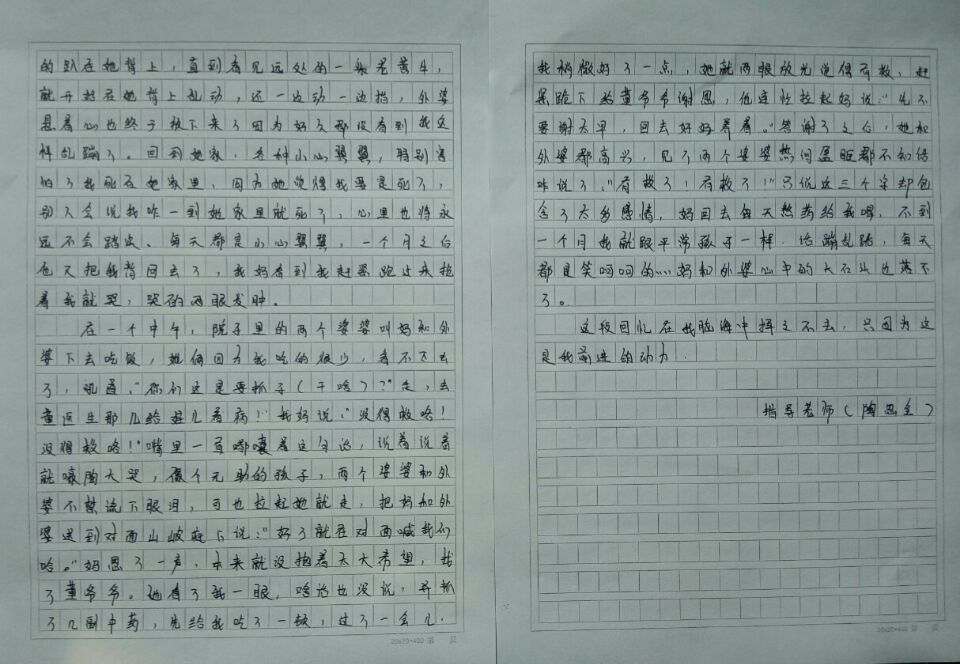 的趴在她背上，直到看见远处的一条老黄牛，
就开始在她背上乱动，还一边动一边指，外婆
悬着心也终于放下来了因为好久都没看到我这
样乱蹦了。回到她家，各种小心翼翼，特别害
怕了我死在她家里，因为她觉得我要是死了，
别人会说我咋一到她家里就死了，心里也将永
远不会踏实、每天都是小心翼翼，一个月之后
也又把我背回去了，我妈看到我赶紧跑过来抱
着我就哭，哭的两眼发肿。
在一个中午，院子里的两个婆婆叫妈和外
婆下去吃饭，她俩因为我吃的很少，看不下去
了，吼道：“你们这是要抓子（干啥）？”走，去
董医生那儿给娃儿看病！”我妈说：“没得救咯！
没得救咯！”嘴里一直嘟囔着这句话，说着说着
就嚎陶大哭，像个无助的孩子，两个婆婆和外
婆不禁流下眼泪，可也拉起她就走，把妈和外
婆送到对面山坡底下说：“好了就在对面喊我们
哈。”妈恩了一声，本来就没抱着太大希望，找
了董爷爷。他看了我一眼，啥话也没说，弄抓
了几副中药，先给我吃了一顿，过了一会儿，
20x20=400 第 页
我稍微好了一点，她就两眼放光说信有救，赶
紧跪下给董爷爷谢恩，他连忙拉起妈说：“先不
要谢太早，回去好好看看。”答谢了之后，她和
外婆都高兴，见了两个婆婆热泪盈眶都不知信
咋说了：“有救了！有救了！”只仅这三个字却包
含了太多感情，妈回去每天熬药给我喝，不到
一个月我就跟平常孩子一样，活蹦乱跳，每天
都是笑呵呵的……妈和外婆心中的大石头也落下
了。
这段回忆在我脑海中挥之不去，只因为这
是我前进的动力．
指导老师（陶 全）
20x20=400 第 页